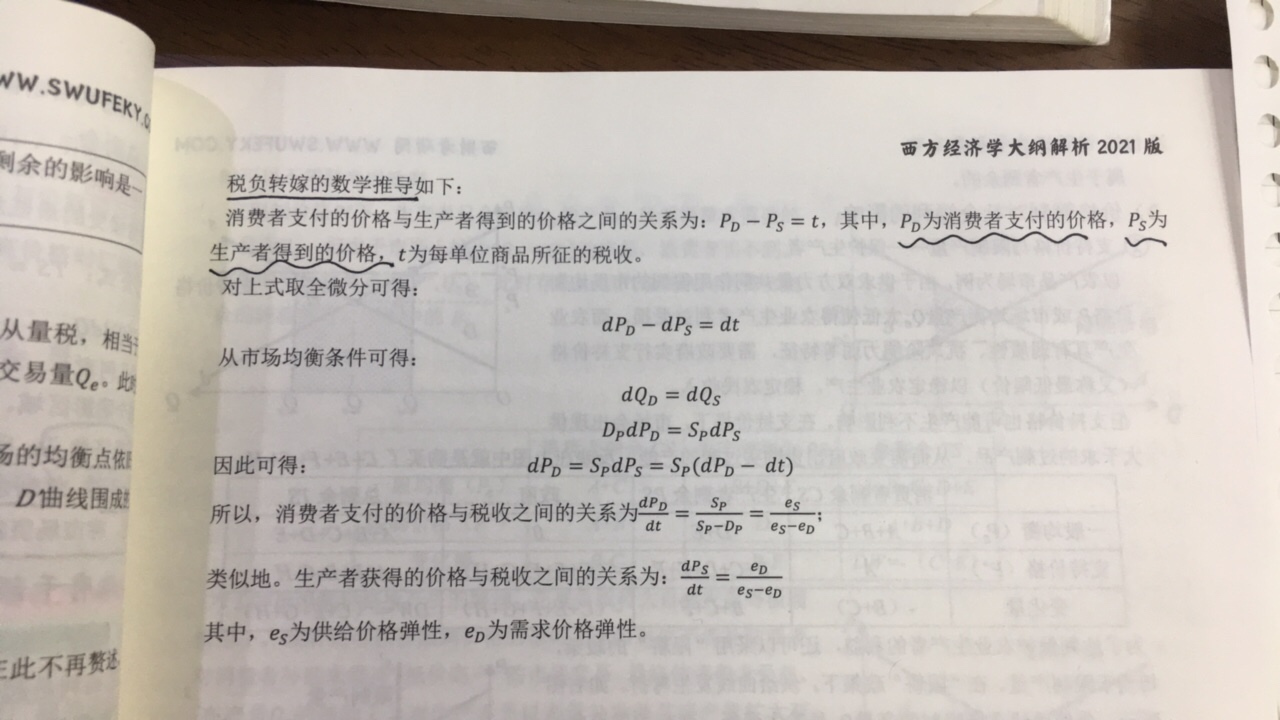 WW.SWUFEKY.C
剩余的影响是一
从量税，相当于
交易量Qₑ。此
场的均衡点依
D'曲线围成
在此不再赘述
西方经济学大纲解析 2021 版
税负转嫁的数学推导如下：
消费者支付的价格与生产者得到的价格之间的关系为：P_D − P_S = t，其中，P_D为消费者支付的价格，P_S为
生产者得到的价格，t为每单位商品所征的税收。
对上式取全微分可得：
dP_D − dP_S = dt
从市场均衡条件可得：
dQ_D = dQ_S
D_P dP_D = S_P dP_S
因此可得： dP_D = S_P dP_S = S_P(dP_D − dt)
所以，消费者支付的价格与税收之间的关系为dP_D/dt = S_P/(S_P−D_P) = e_S/(e_S−e_D)；
类似地。生产者获得的价格与税收之间的关系为：dP_S/dt = e_D/(e_S−e_D)
其中，e_S为供给价格弹性，e_D为需求价格弹性。